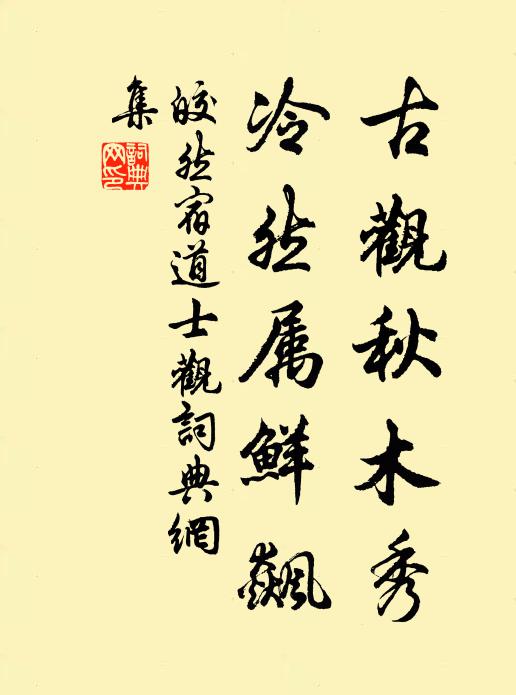 古觀秋木秀
冷然属鮮飆
皎然宿道士觀詞典網
集
詞典
网印